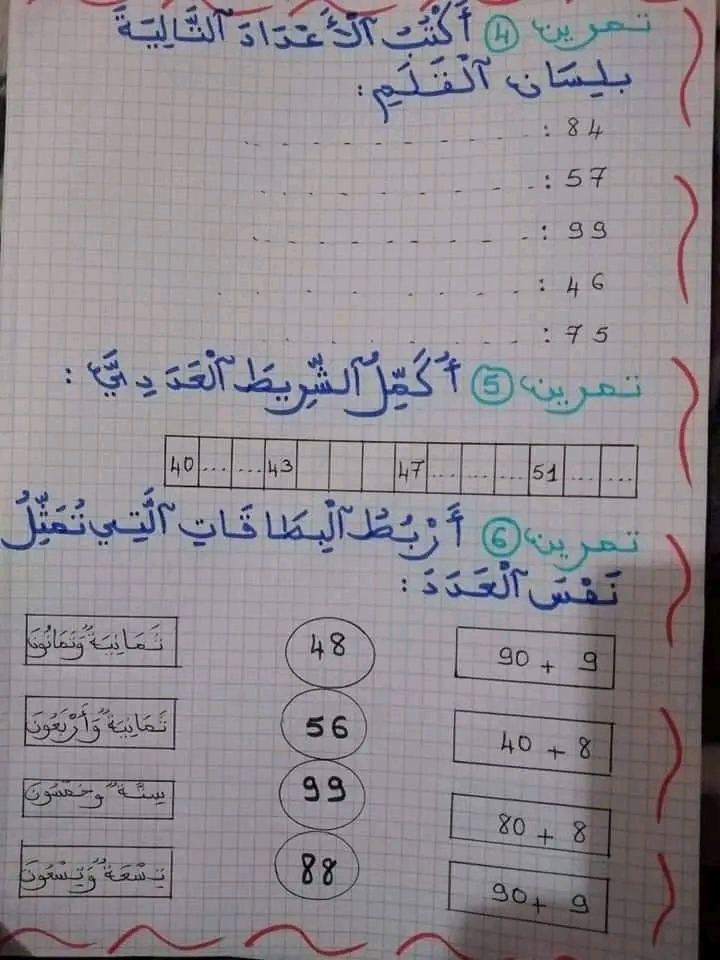 تمرين 4 أَكْتُبُ ٱلْأَعْدَادَ ٱلتَّالِيَةَ
بِلِسَانِ ٱلْقَلَمِ:
84 : ..........
57 : ..........
99 : ..........
46 : ..........
75 : ..........
تمرين 5 أُكَمِّلُ ٱلشَّرِيطَ ٱلْعَدَدِيَّ :
40 ... ... 43 47 ... ... ... 51 ... ...
تمرين 6 أَرْبُطُ ٱلْبِطَاقَاتِ ٱلَّتِي تُمَثِّلُ
نَفْسَ ٱلْعَدَدَ :
90 + 9 48 ثَمَانِيَةٌ وَثَمَانُونَ
40 + 8 56 ثَمَانِيَةٌ وَأَرْبَعُونَ
80 + 8 99 سِتَّةٌ وَخَمْسُونَ
90 + 9 88 تِسْعَةٌ وَتِسْعُونَ